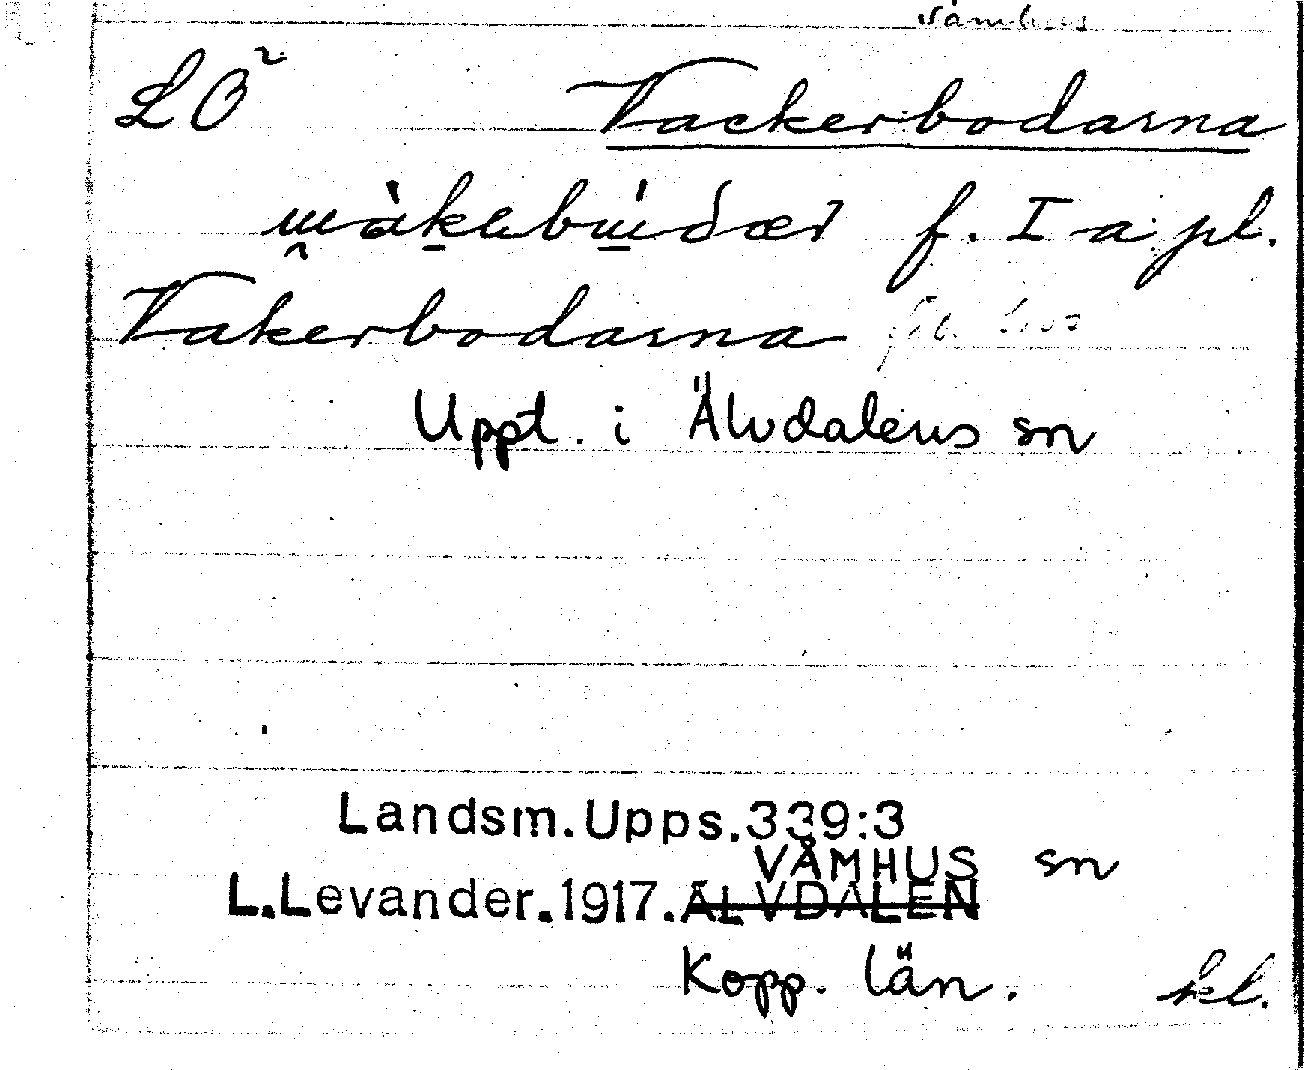 Våmhus
LÖ Vackerbodarna
f. I a pl.
Vakerbodarna
Uppt. i Älvdalens sn
Landsm.Upps.339:3
VÅMHUS sn
L.Levander.1917.ÄLVDALEN
Kopp. län. kl.